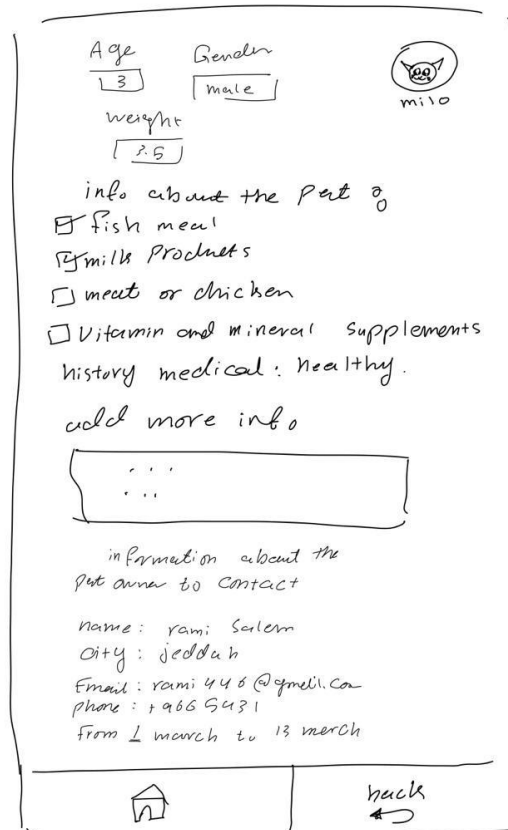 Age
Gender
3
male
milo
weight
3.5
info about the Pet :
fish meal
milk Products
meat or chicken
Vitamin and mineral supplements
history medical : healthy.
add more info
...
...
information about the
pet owner to contact
name : rami Salem
city : jeddah
Email : rami446@gmeil.com
phone : +9665431
From 1 march to 13 merch
back